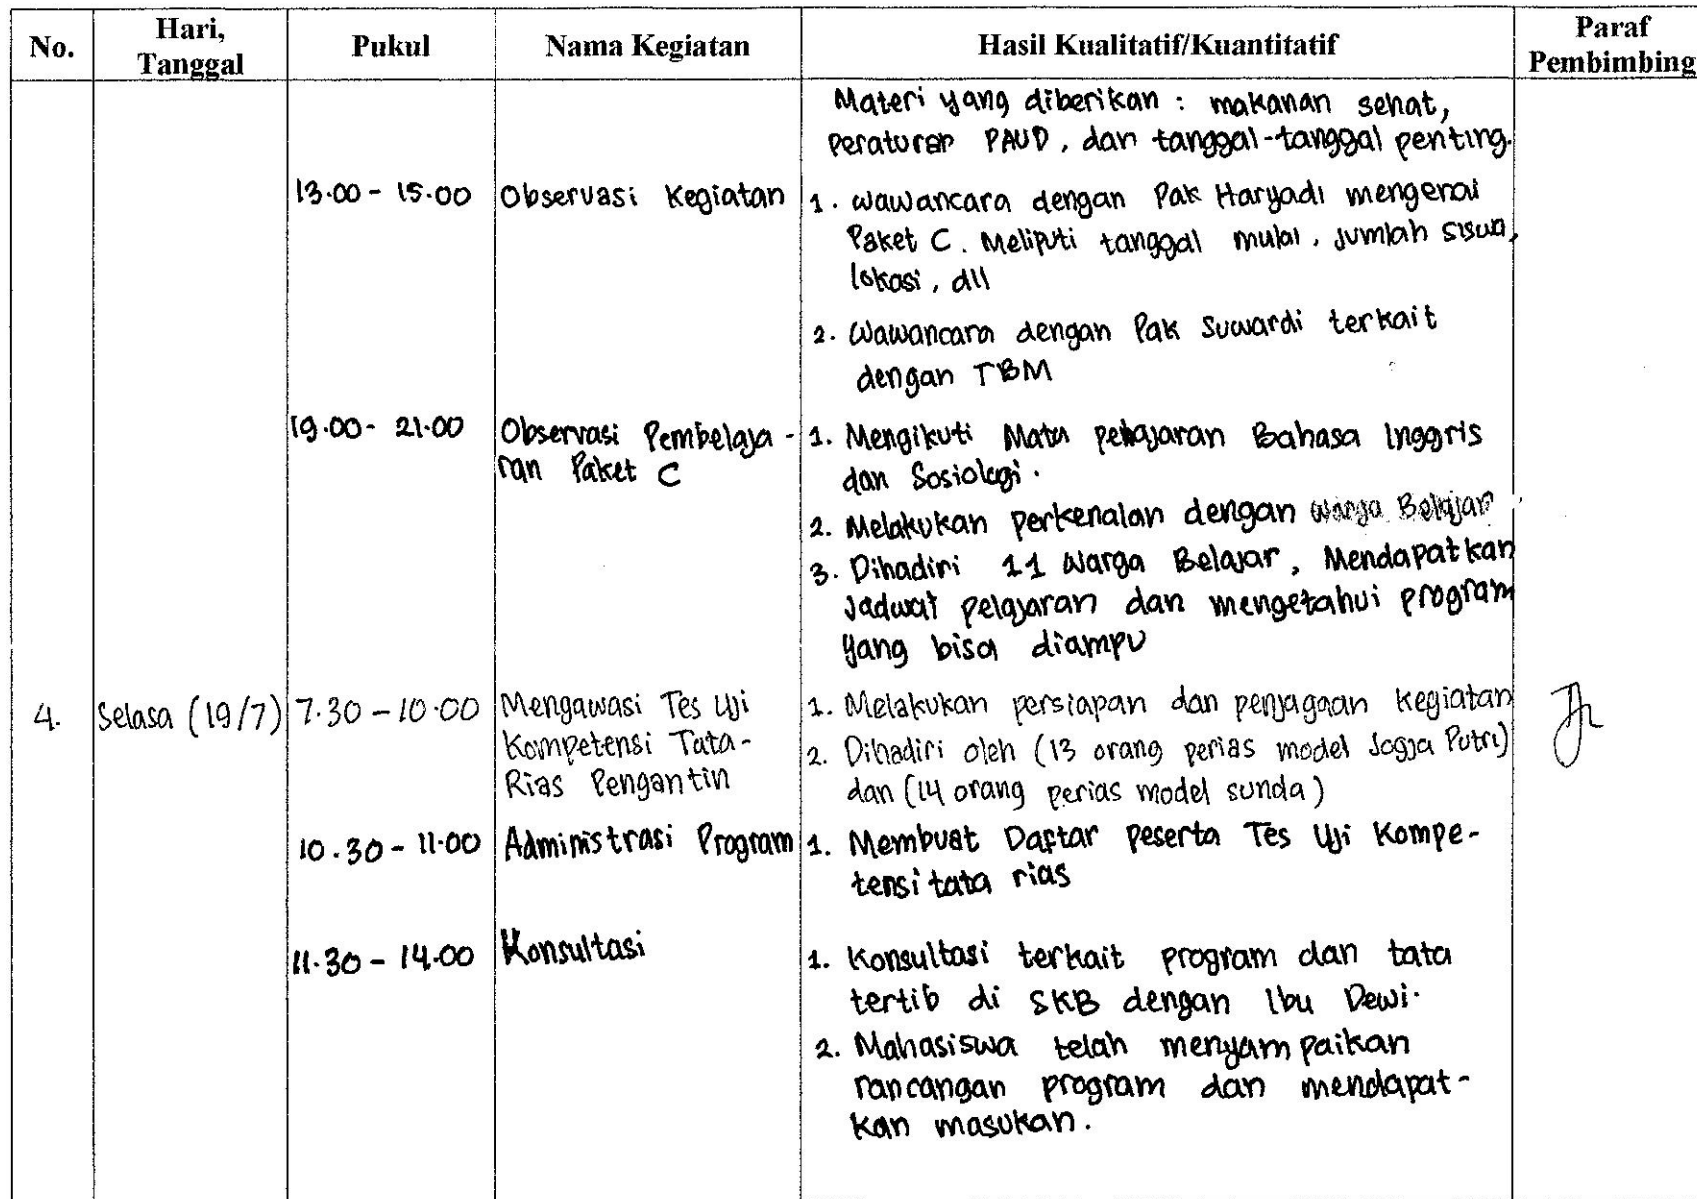 No. Hari, Tanggal Pukul Nama Kegiatan Hasil Kualitatif/Kuantitatif Paraf Pembimbing
Materi yang diberikan : makanan sehat,
peraturan PAUD, dan tanggal-tanggal penting.
13.00 - 15.00 Observasi Kegiatan 1. Wawancara dengan Pak Haryadi mengenai
Paket C. Meliputi tanggal mulai, jumlah siswa,
lokasi, dll
2. Wawancara dengan Pak Suwardi terkait
dengan TBM
19.00 - 21.00 Observasi Pembelaja- 1. Mengikuti Mata pelajaran Bahasa Inggris
ran Paket C dan Sosiologi.
2. Melakukan perkenalan dengan Warga Belajar
3. Dihadiri 11 Warga Belajar, Mendapatkan
Jadwal pelajaran dan mengetahui program
yang bisa diampu
4. Selasa (19/7) 7.30 - 10.00 Mengawasi Tes Uji 1. Melakukan persiapan dan penjagaan kegiatan
Kompetensi Tata- 2. Dihadiri oleh (13 orang perias model Jogja Putri)
Rias Pengantin dan (14 orang perias model sunda)
10.30 - 11.00 Administrasi Program 1. Membuat Daftar peserta Tes Uji Kompe-
tensi tata rias
11.30 - 14.00 Konsultasi 1. Konsultasi terkait program dan tata
tertib di SKB dengan Ibu Dewi.
2. Mahasiswa telah menyampaikan
rancangan program dan mendapat-
kan masukan.